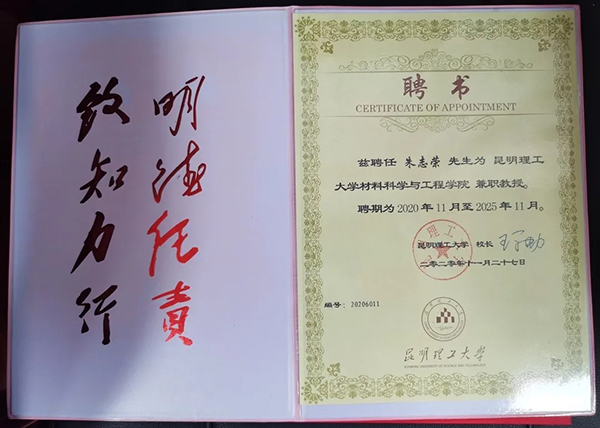 明德任责
致知力行
聘书
CERTIFICATE OF APPOINTMENT
兹聘任 朱志荣 先生为 昆明理工
大学材料科学与工程学院 兼职教授。
聘期为 2020 年 11 月至 2025 年 11 月。
昆明理工大学 校长
二〇二〇年十一月二十七日
编号：20206011
昆明理工大学
KUNMING UNIVERSITY OF SCIENCE AND TECHNOLOGY